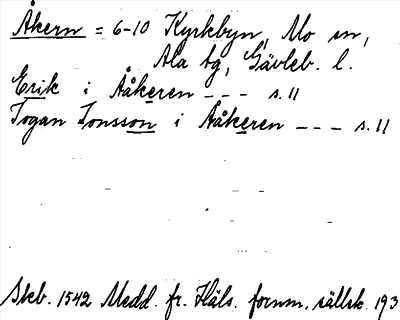 Åkern = 6-10 Kyrkbyn, Mo sn,
Ala tg, Gävleb. l.
Erik i Ååkeren --- s. 11
Jogan Jonsson i Ååkeren --- s. 11
Skeb. 1542 Medd. fr. Häls. fornm. sällsk. 193